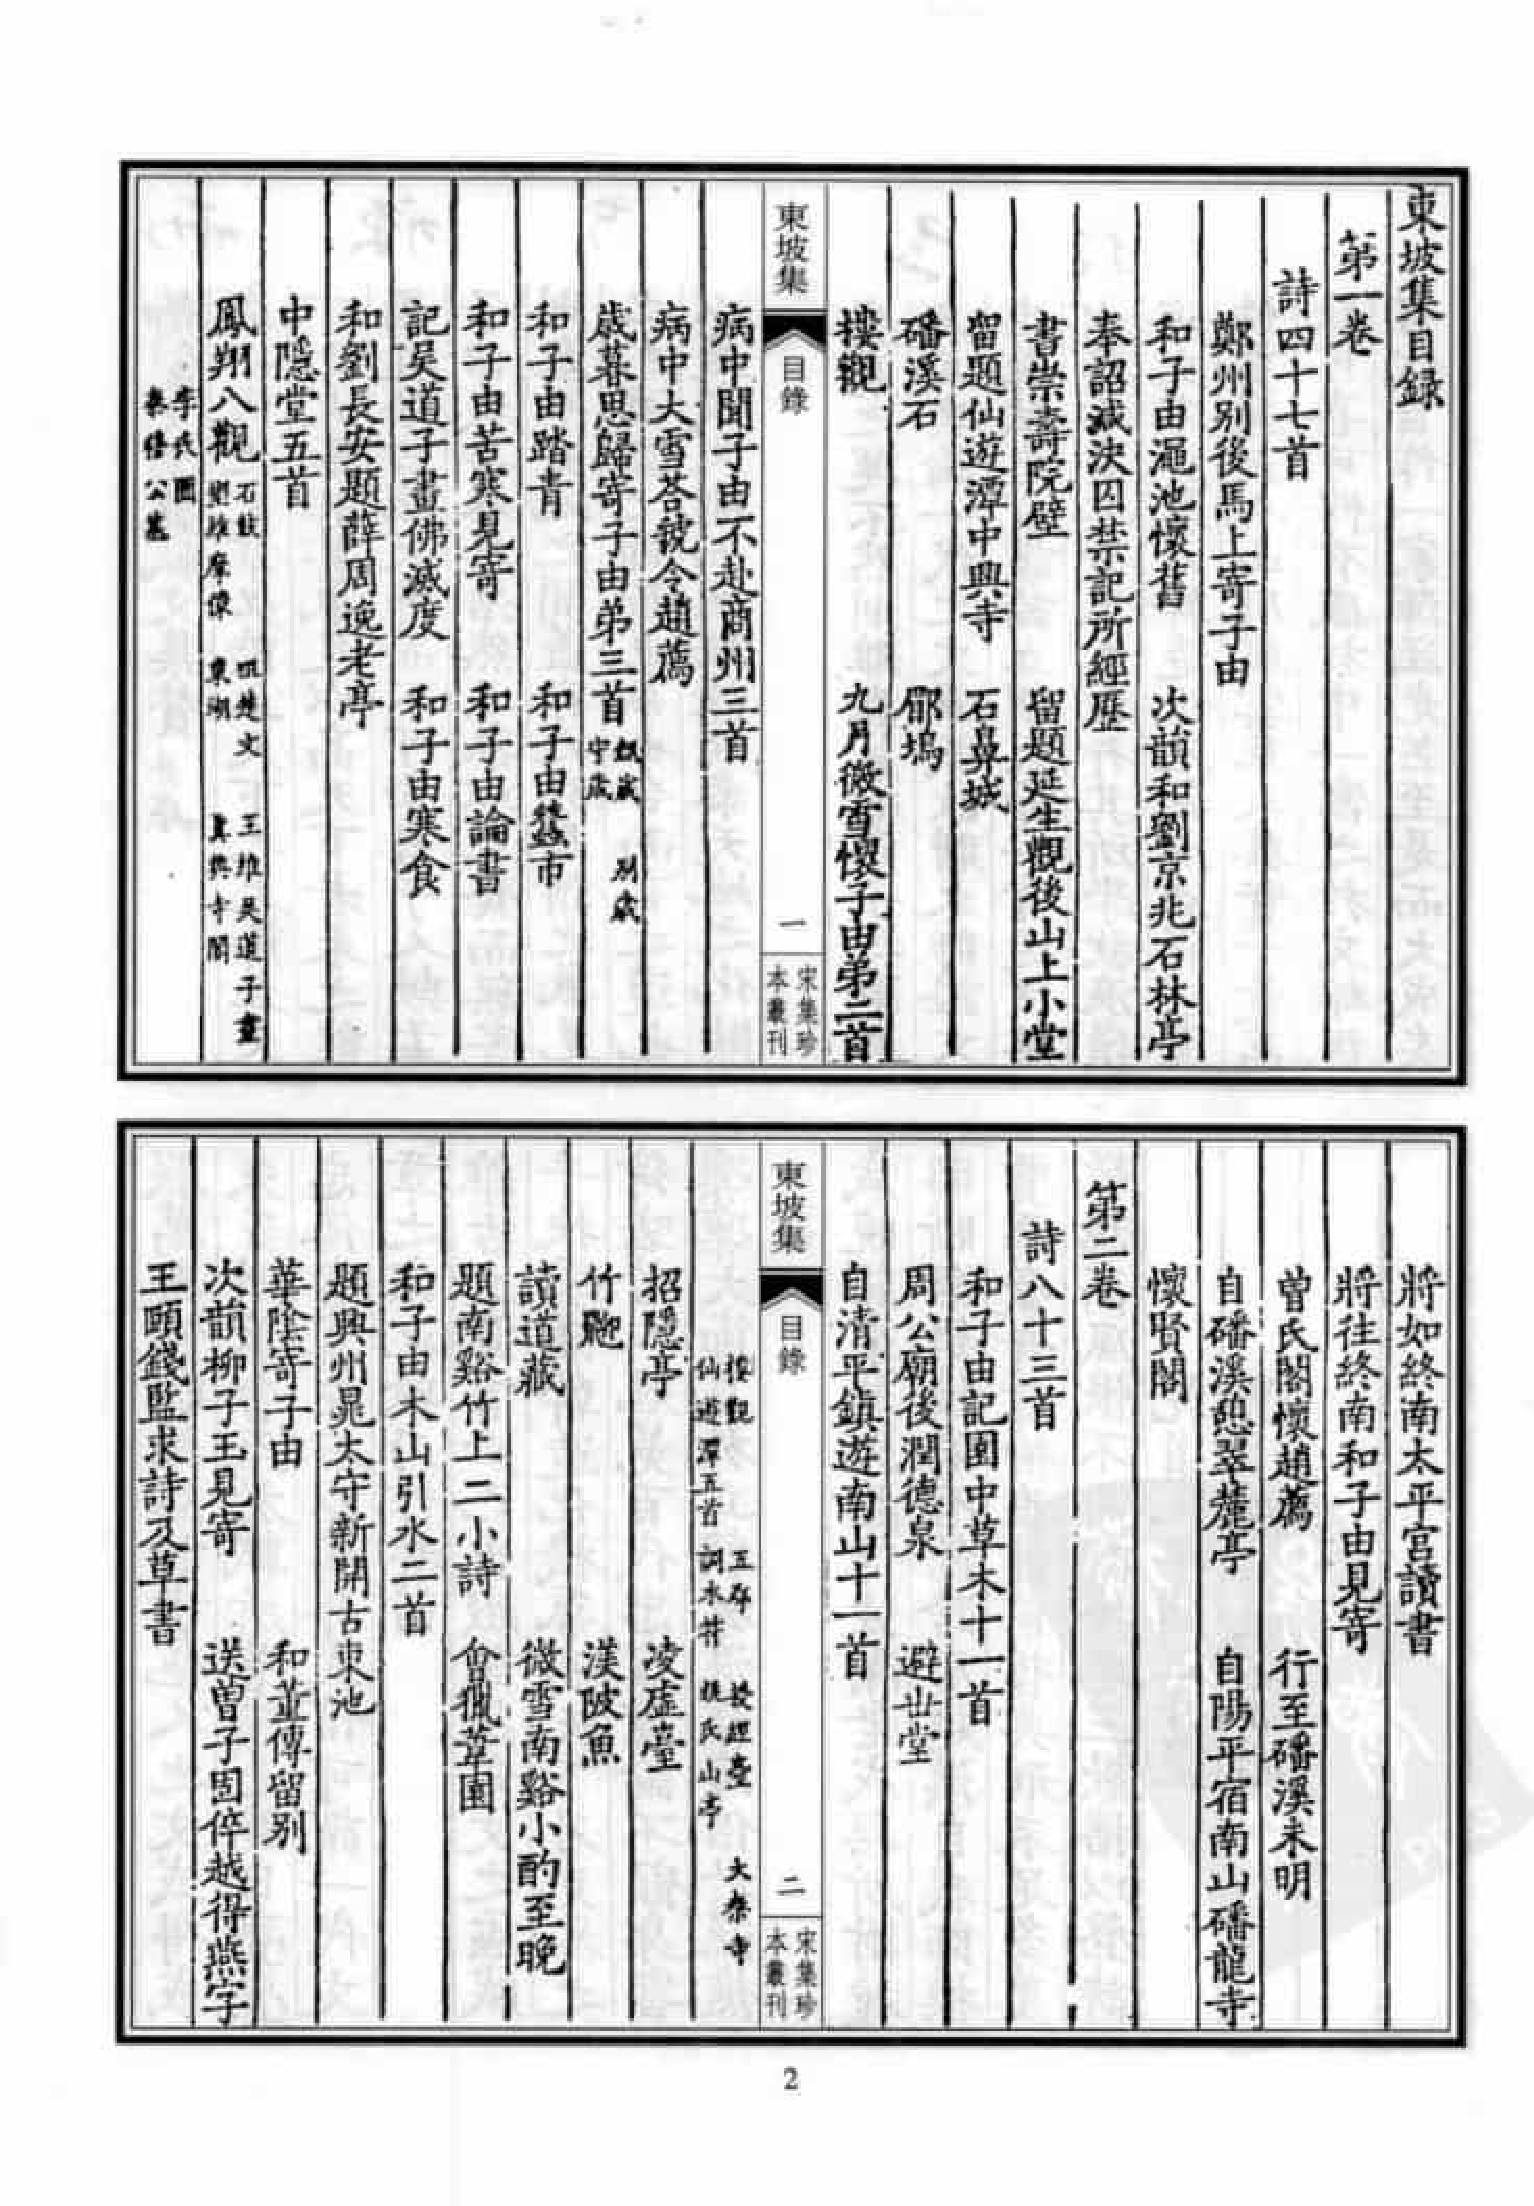 東坡集目録
第一卷
詩四十七首
鄭州別後馬上寄子由
和子由澠池懷舊　次韻和劉京兆石林亭
奉詔減決囚禁記所經歷
書崇壽院壁　留題延生觀後山上小堂
留題仙遊潭中興寺　石鼻城
磻溪石　郿塢
樓觀　九月微雪懷子由弟二首
東坡集
目錄
一
宋集珍
本叢刊
病中聞子由不赴商州三首
病中大雪荅虢令趙薦
歲暮思歸寄子由弟三首 餽歲　別歲
守歲
和子由踏青　和子由蠶市
和子由苦寒見寄　和子由論書
記吴道子畫佛滅度　和子由寒食
和劉長安題薛周逸老亭
中隱堂五首
鳳翔八觀 石鼓　詛楚文　王維吴道子畫
塑維摩像　東湖　真興寺閣
李氏園
秦穆公墓
將如終南太平宫讀書
將往終南和子由見寄
曾氏閣懷趙薦　行至磻溪未明
自磻溪憩翠麓亭　自陽平宿南山磻龍寺
懷賢閣
第二卷
詩八十三首
和子由記園中草木十一首
周公廟後潤德泉　避世堂
自清平鎮遊南山十一首
東坡集
目錄
二
宋集珍
本叢刊
樓觀　五郡　授經臺　大秦寺
仙遊潭五首　調水符　姚氏山亭
招隱亭　凌虚臺
竹䶉　渼陂魚
讀道藏　微雪南谿小酌至晚
題南谿竹上二小詩　會獵葦園
和子由木山引水二首
題興州晁太守新開古東池
華陰寄子由　和董傳留別
次韻柳子玉見寄　送曾子固倅越得燕字
王頤錢監求詩及草書
2